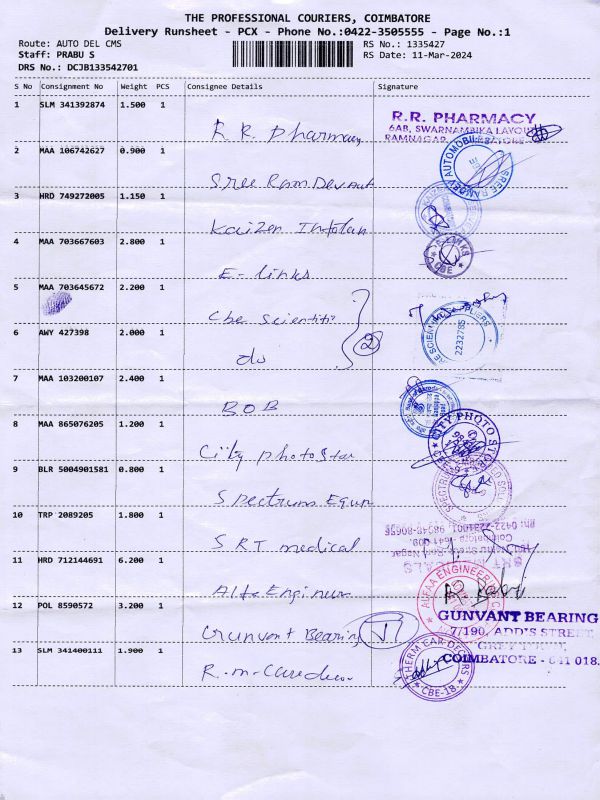 THE PROFESSIONAL COURIERS, COIMBATORE
Delivery Runsheet - PCX - Phone No.:0422-3505555 - Page No.:1
Route: AUTO DEL CMS RS No.: 1335427
Staff: PRABU S RS Date: 11-Mar-2024
DRS No.: DCJB133542701
S No Consignment No Weight PCS Consignee Details Signature
1 SLM 341392874 1.500 1
R.R. Pharmacy
R.R. PHARMACY
6AB, SWARNAMBIKA LAYOUT
RAMNAGAR,
2 MAA 106742627 0.900 1
Sree Ram Dev Aut
SREE RAMDEV AUTOMOBILES
3 HRD 749272005 1.150 1
Kaizen Infolan
4 MAA 703667603 2.800 1
E-links
CBE
5 MAA 703645672 2.200 1
Cbe Scientifi
6 AWY 427398 2.000 1
do
2
2232785
7 MAA 103200107 2.400 1
BOB
8 MAA 865076205 1.200 1
Ciity photo Star
CITY PHOTO STOR
9 BLR 5004901581 0.800 1
Spectrum Equp
10 TRP 2089205 1.800 1
SRT medical
Ph: 0422-2231001, 98948-80656
11 HRD 712144691 6.200 1
Alfa Engineer
12 POL 8590572 3.200 1
Gunvant Bearing
GUNVANT BEARING
7/190, ADD'S STREET,
COIMBATORE - 641 018.
13 SLM 341400111 1.900 1
R.m-Caredecor
THERM CAR DECORS
CBE-18